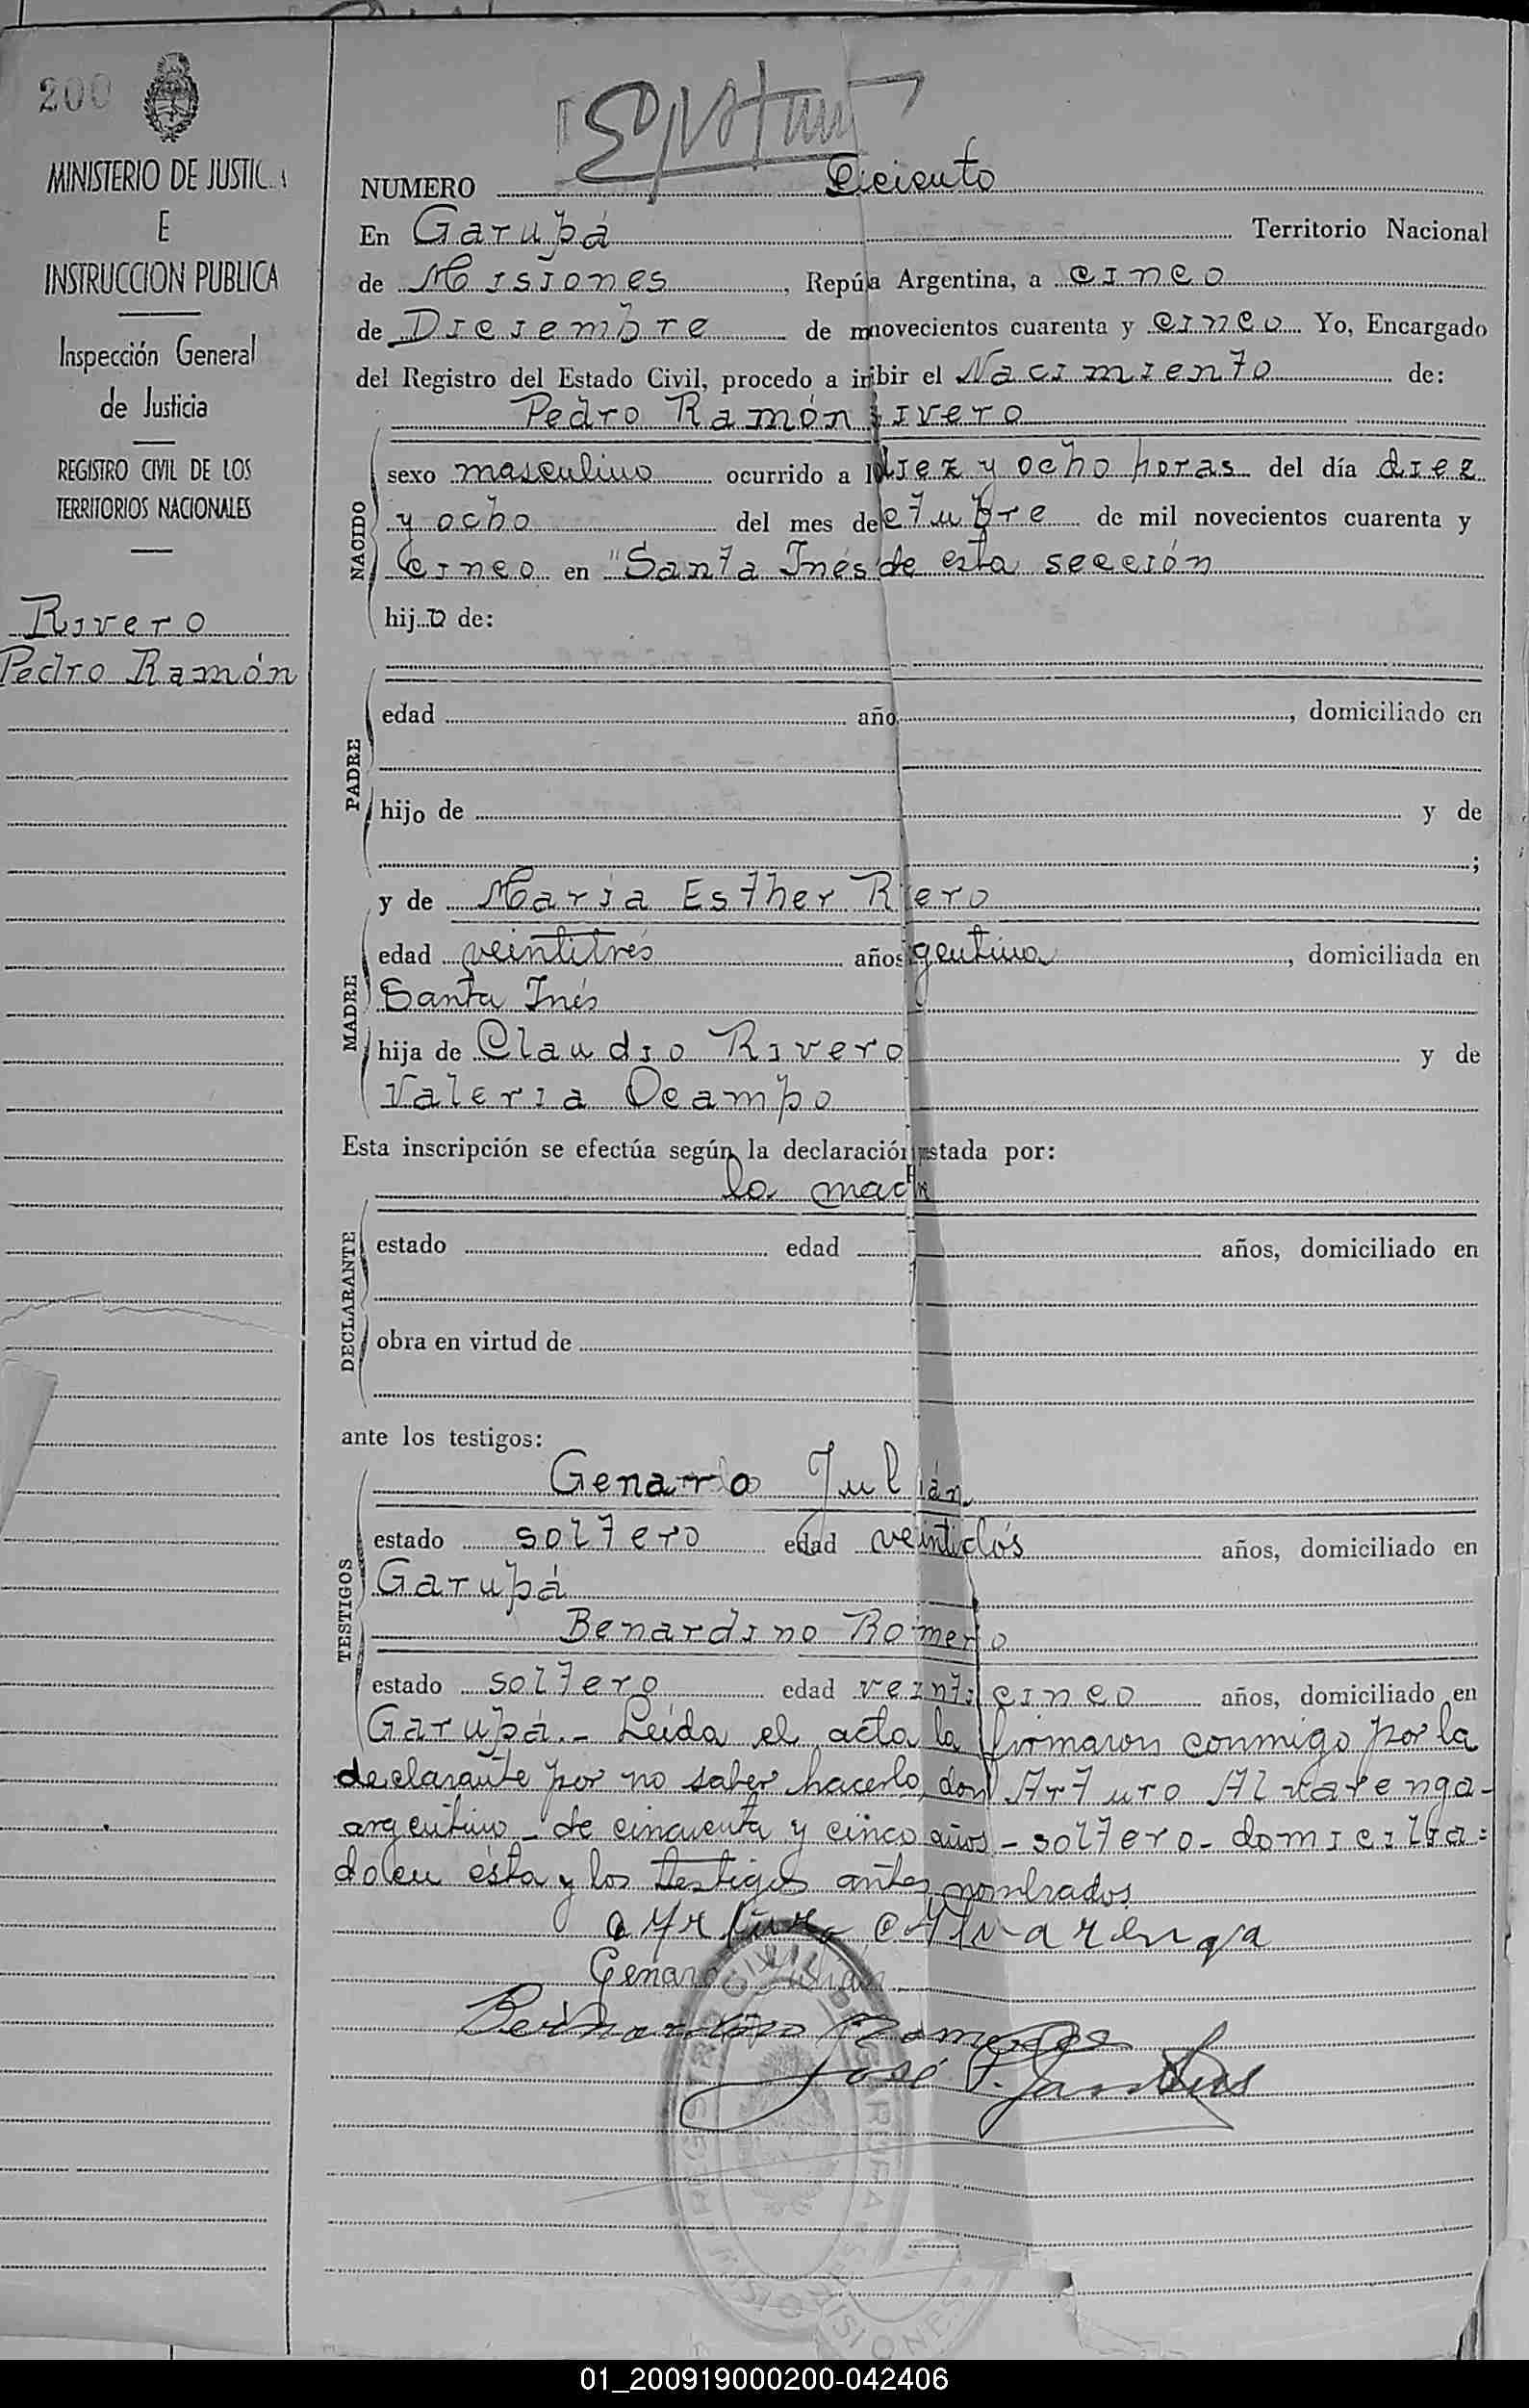 200
MINISTERIO DE JUSTIC
E
INSTRUCCION PUBLICA
Inspección General
de Justicia
REGISTRO CIVIL DE LOS
TERRITORIOS NACIONALES
Rivero
Pedro Ramón
NUMERO
En Garupá Territorio Nacional
de Misiones, Repú a Argentina, a cinco
de Diciembre de m novecientos cuarenta y cinco Yo, Encargado
del Registro del Estado Civil, procedo a i ribir el Nacimiento de:
Pedro Ramón ivero
NACIDO
sexo masculino ocurrido a l diez y ocho horas del día diez
y ocho del mes de ctubre de mil novecientos cuarenta y
cinco en "Santa Inés" de esta sección
hijo de:
PADRE
edad año , domiciliado en
hijo de y de
;
MADRE
y de María Esther R ero
edad veintitrés años gentina, domiciliada en
Santa Inés
hija de Claudio Rivero y de
Valeria Ocampo
Esta inscripción se efectúa según la declaración stada por:
la madre
DECLARANTE
estado edad años, domiciliado en
obra en virtud de
ante los testigos:
TESTIGOS
Genaro Julián
estado soltero edad veintidós años, domiciliado en
Garupá
Benardino Romero
estado soltero edad veinticinco años, domiciliado en
Garupá.- Leída el acta la firmaron conmigo por la
declarante por no saber hacerlo, don Arturo Alvarenga-
argentino- de cincuenta y cinco años- soltero- domicilia=
do en ésta y los testigos antes nombrados.
Arturo Alvarenga
Genaro Julian
Bernardino Romero
José
REGISTRO CIVIL DE GARUPA MISIONES
01_200919000200-042406